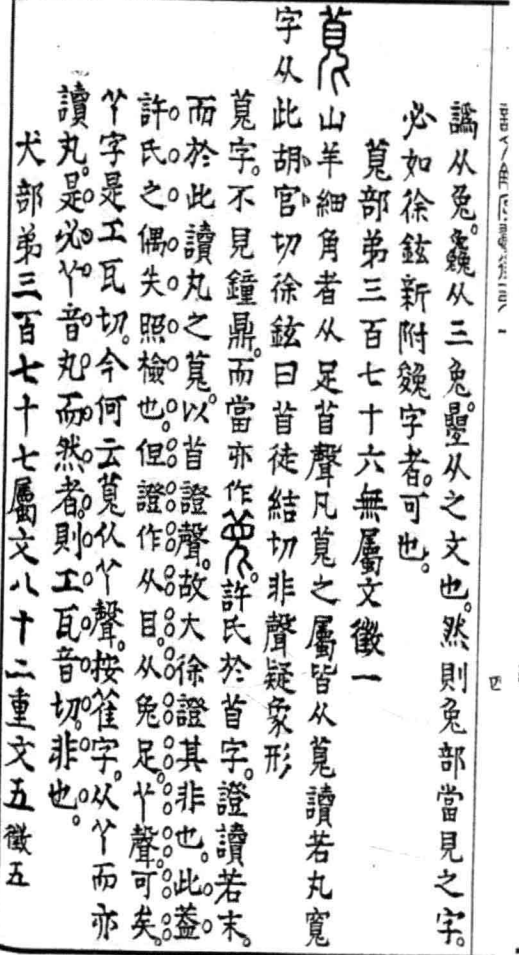 譌从兔。毚从三兔。㲋从之文也。然則兔部當見之字。
必如徐鉉新附㕙字者。可也。
莧部第三百七十六無屬文徵一
莧山羊細角者从足苜聲凡莧之屬皆从莧讀若丸寬
字从此胡官切徐鉉曰苜徒結切非聲疑象形
莧字。不見鐘鼎。而當亦作。許氏於苜字。證讀若末。
而於此讀丸之莧。以苜證聲。故大徐證其非也。此葢
許氏之偶失照檢也。但證作从目。从兔足。丫聲。可矣。
丫字是工瓦切。今何云莧从丫聲。按萑字。从丫而亦
讀丸。是必丫音丸而然者。則工瓦音切。非也。
犬部第三百七十七屬文八十二重文五徵五
四